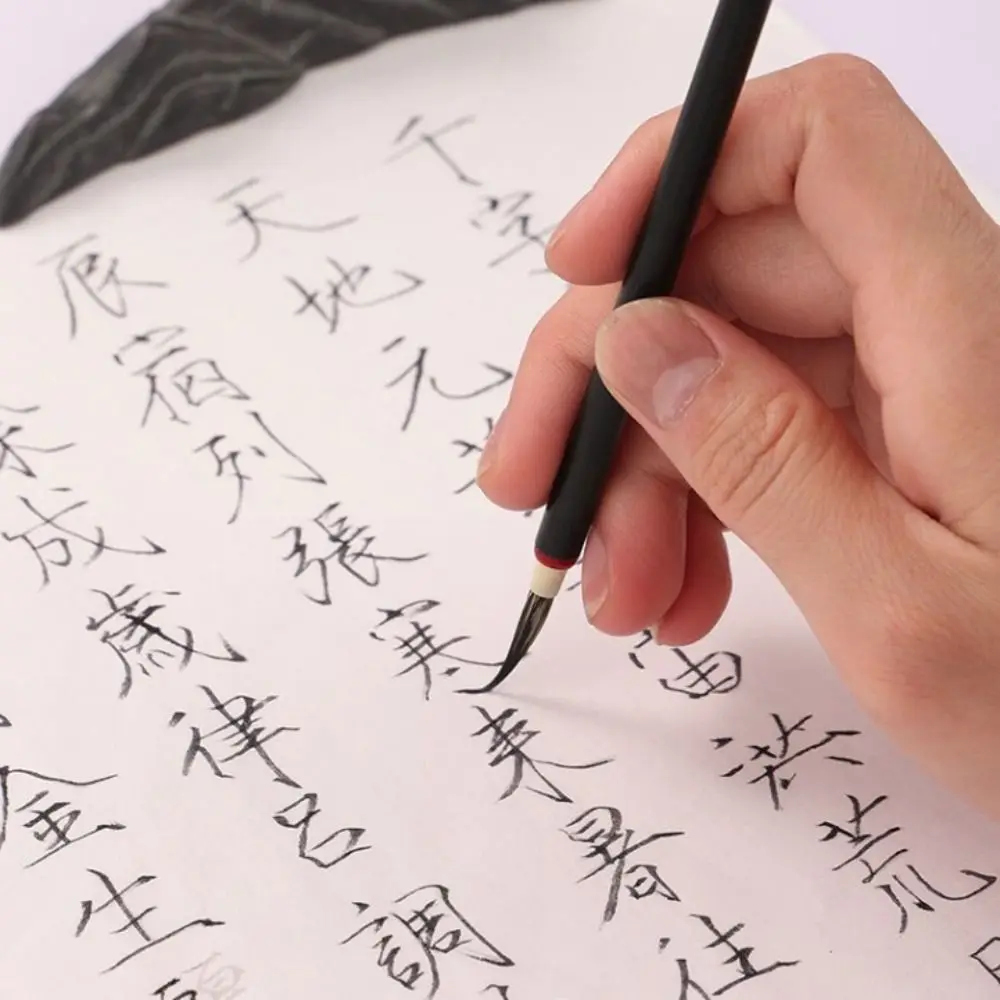 千字
天地元宙洪荒
辰宿列張寒來暑往
成歲律呂調
金生